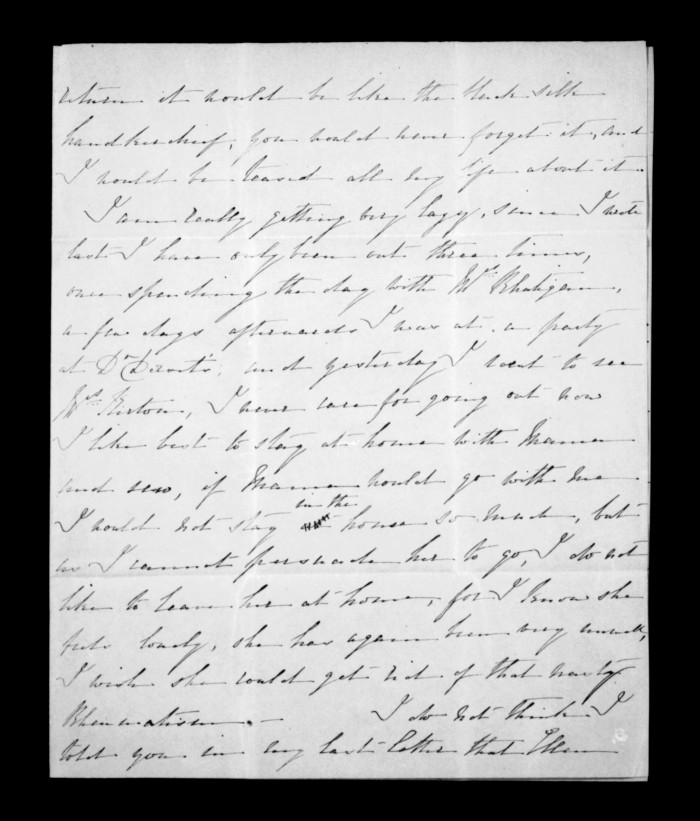 return it would be like the black silk
handkerchief, you would never forget it, and
I would be teased all my life about it.
I am really getting very lazy, since I wrote
last I have only been out three times,
once spending the day with Mrs
a few days afterwards I was at a party
at Dr and yesterday I went to see
Mrs I never care for going out now
I like best to stay at home with Mama
and sew, if Mama would go with me
I would not stay in the house so much, but
as I cannot persuade her to go, I do not
like to leave her at home, for I know she
feels lonely, she has again been very unwell,
I wish she could get rid of that nasty
Rheumatism.— I do not think I
told you in my last letter that Ellen